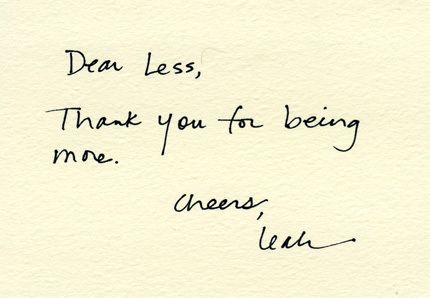 Dear Less,
Thank you for being
more.
Cheers,
Leah